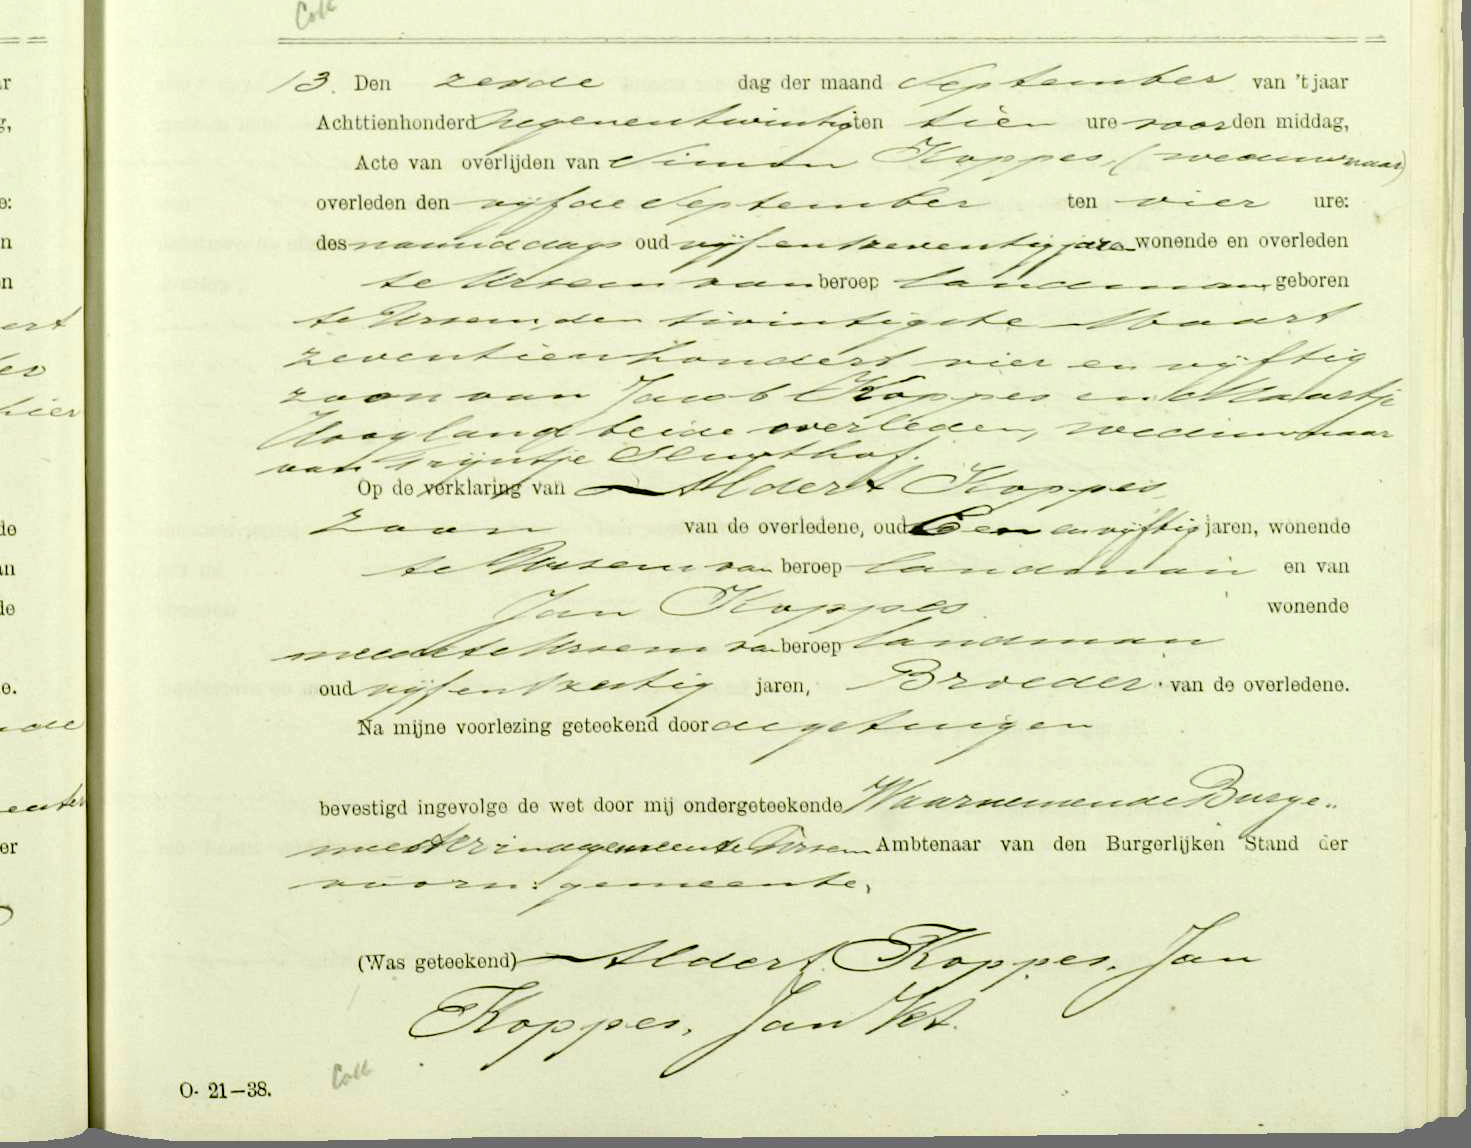 Coll
13. Den zesde dag der maand September van 't jaar
Achttienhonderd negenentwintig ten tien ure voor den middag,
Acte van overlijden van Simon Koppes, (weduwnaar)
overleden den vijfde September ten vier ure:
des namiddags oud vijfenzeventig jaren wonende en overleden
te Ursem van beroep landman, geboren
te Ursem, den twintigste Maart
zeventienhondert vier en vijftig
zoon van Jacob Koppes en Maartje
Hoogland beide overleden, weduwnaar
van Trijntje
Op de verklaring van Aldert Koppes,
zoon van de overledene, oud Een en vijftig jaren, wonende
te Ursem van beroep landman en van
Jan Koppes wonende
mede te Ursem van beroep landman
oud vijfenzestig jaren, Broeder van de overledene.
Na mijne voorlezing geteekend door de getuigen
bevestigd ingevolge de wet door mij ondergeteekende Waarnemende Burge„
meester in de gemeente Ursem Ambtenaar van den Burgerlijken Stand der
voorn: gemeente,
(Was geteekend) Aldert Koppes, Jan
Koppes, Jan Vet.
Coll
O. 21–38.
r
g,
e:
n
en
ert
hier
de
an
de
e.
nde
er